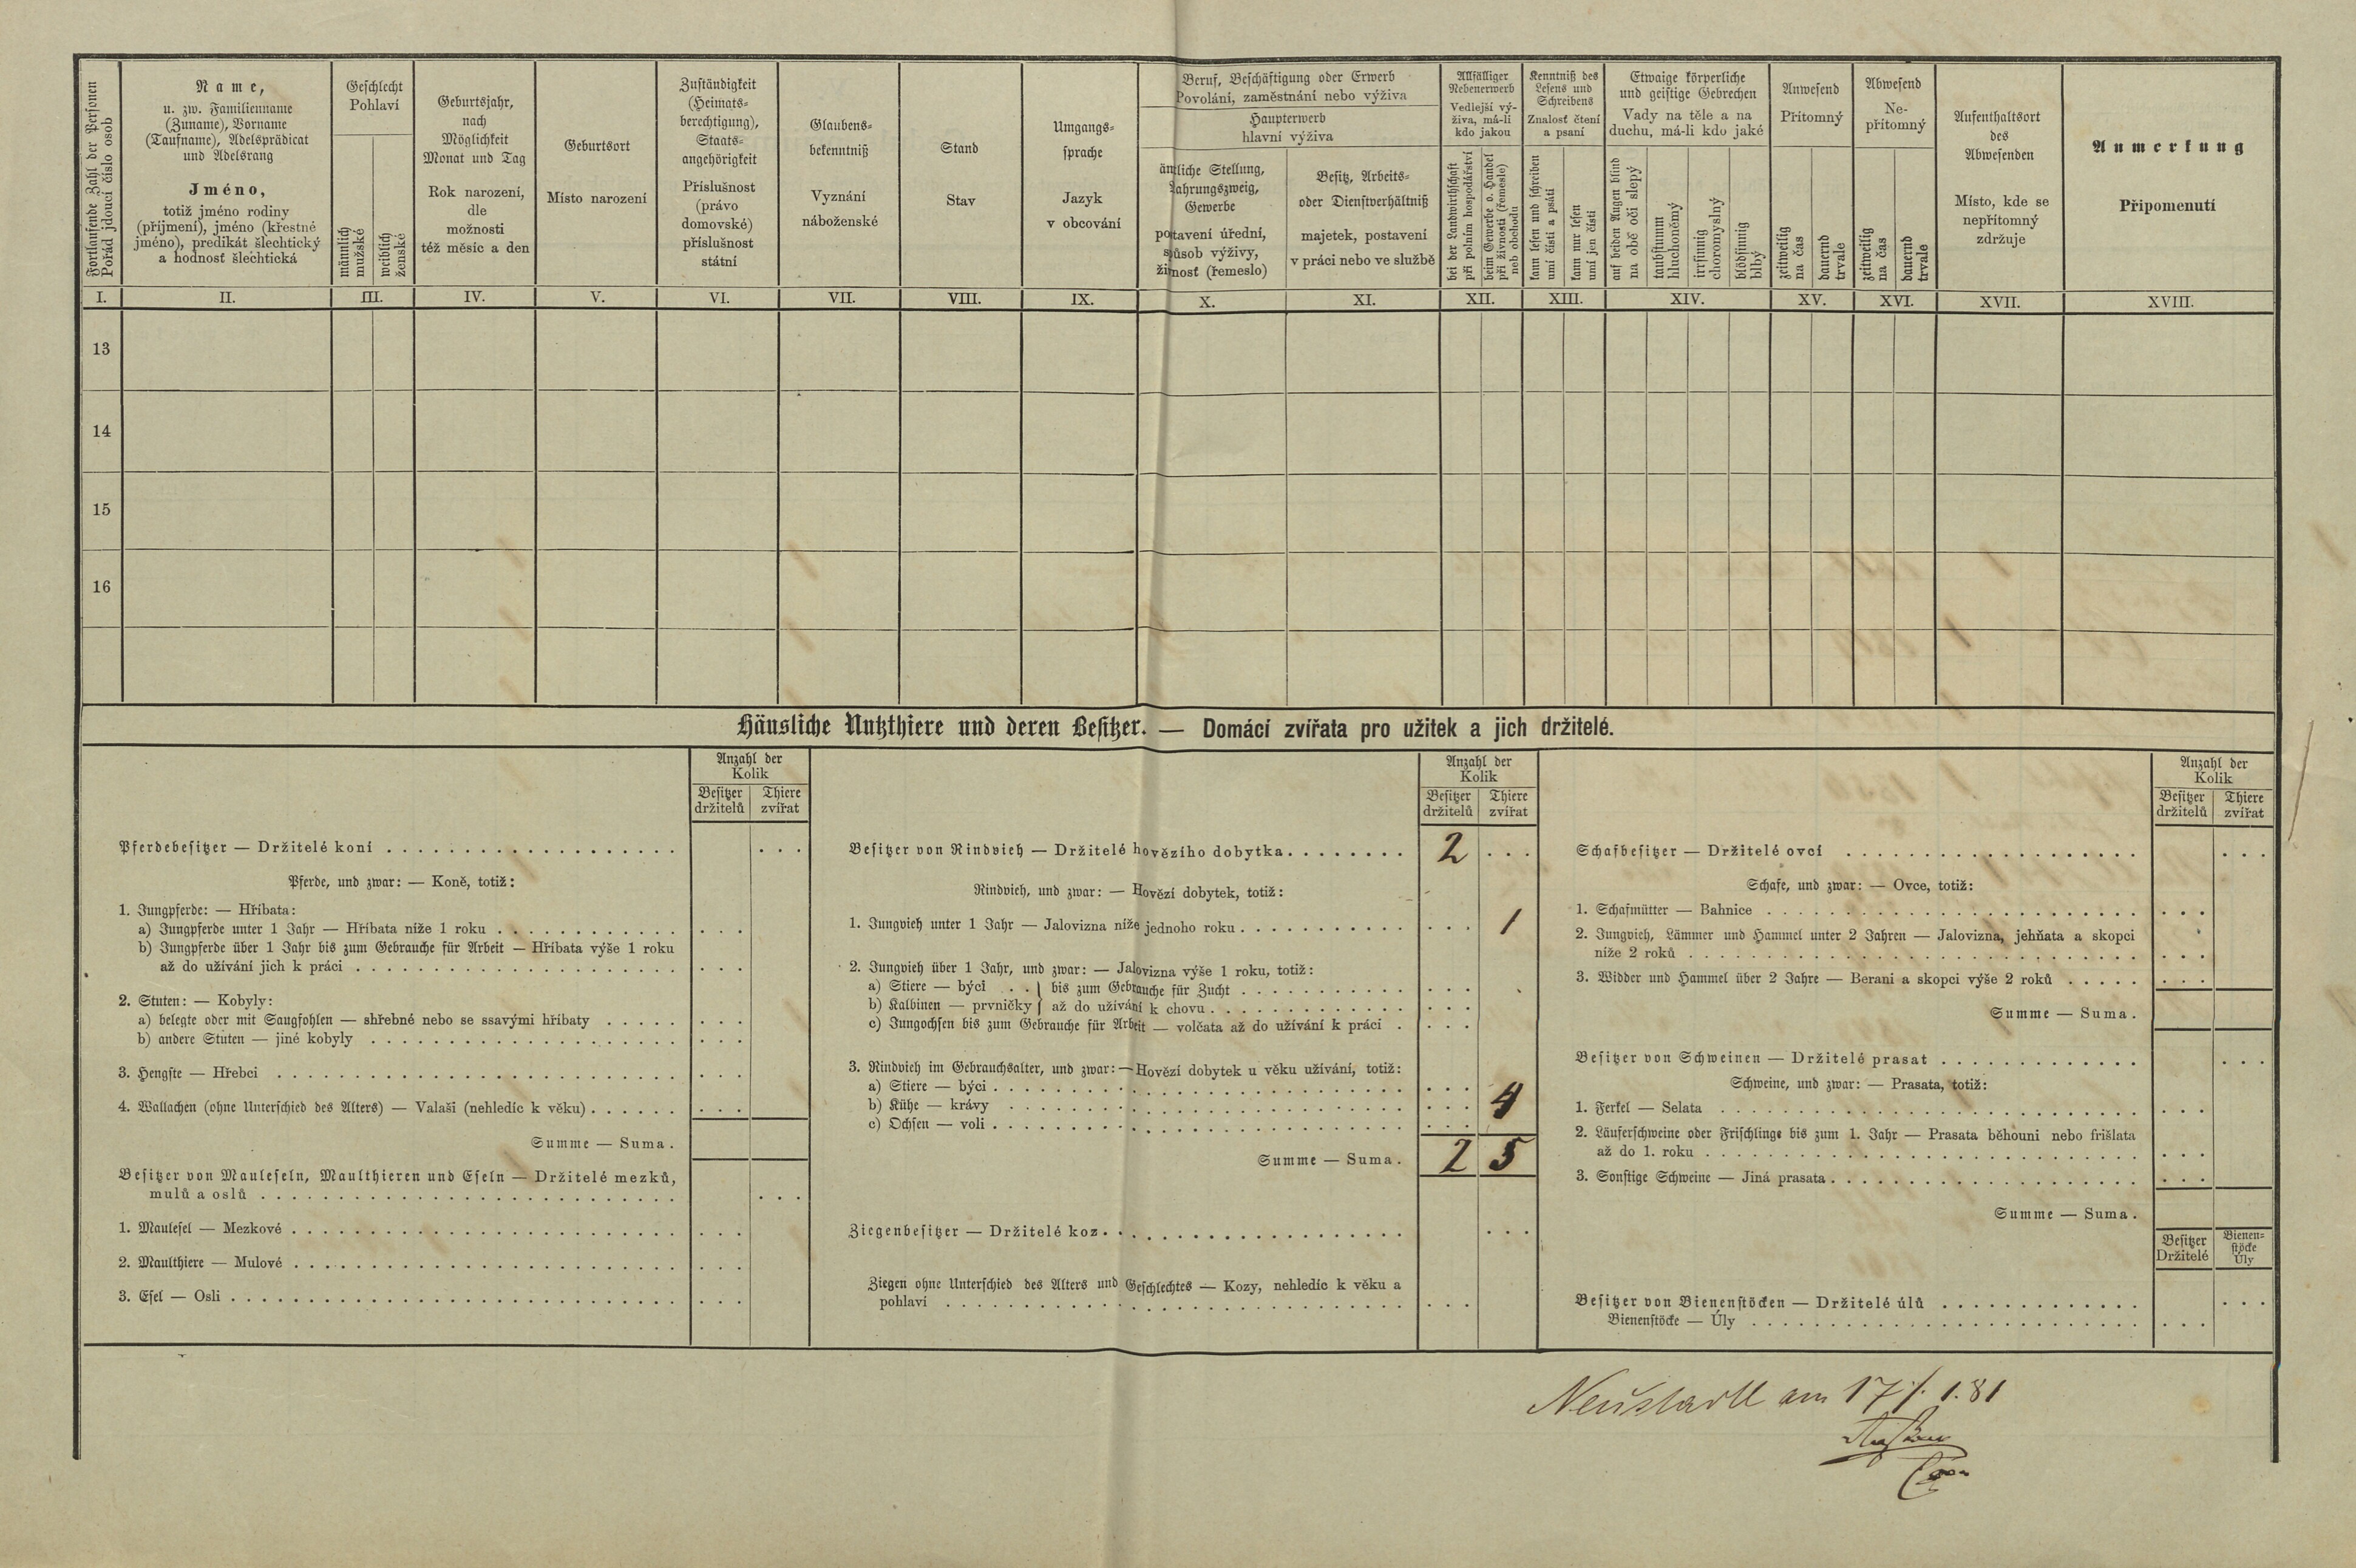 Fortlaufende Zahl der Personen
Pořád jdoucí číslo osob
Name,
u. zw. Familienname
(Zuname), Vorname
(Taufname), Adelsprädicat
und Adelsrang
Jméno,
totiž jméno rodiny
(příjmení), jméno (křestné
jméno), predikát šlechtický
a hodnosť šlechtická
Geschlecht
Pohlaví
männlich
mužské
weiblich
ženské
Geburtsjahr,
nach
Möglichkeit
Monat und Tag
Rok narození,
dle
možnosti
též měsíc a den
Geburtsort
Místo narození
Zuständigkeit
(Heimats-
berechtigung),
Staats-
angehörigkeit
Příslušnost
(právo
domovské)
příslušnost
státní
Glaubens-
bekenntniß
Vyznání
náboženské
Stand
Stav
Umgangs-
sprache
Jazyk
v obcování
Beruf, Beschäftigung oder Erwerb
Povolání, zaměstnání nebo výživa
Haupterwerb
hlavní výživa
ämtliche Stellung,
Nahrungszweig,
Gewerbe
postavení úřední,
spůsob výživy,
živnosť (řemeslo)
Besitz, Arbeits-
oder Dienstverhältniß
majetek, postavení
v práci nebo ve službě
Allfälliger
Nebenerwerb
Vedlejší vý-
živa, má-li
kdo jakou
bei der Landwirthschaft
při polním hospodářství
beim Gewerbe o. Handel
při živnosti (řemesle)
neb obchodu
Kenntniß des
Lesens und
Schreibens
Znalosť čtení
a psaní
kann lesen und schreiben
umí čísti a psáti
kann nur lesen
umí jen čísti
Etwaige körperliche
und geistige Gebrechen
Vady na těle a na
duchu, má-li kdo jaké
auf beiden Augen blind
na obě oči slepý
taubstumm
hluchoněmý
irrsinnig
choromyslný
blödsinnig
blbý
Anwesend
Přítomný
zeitweilig
na čas
dauernd
trvale
Abwesend
Ne-
přítomný
zeitweilig
na čas
dauernd
trvale
Aufenthaltsort
des
Abwesenden
Místo, kde se
nepřítomný
zdržuje
Anmerkung
Připomenutí
I. II. III. IV. V. VI. VII. VIII. IX. X. XI. XII. XIII. XIV. XV. XVI. XVII. XVIII.
13
14
15
16
Häusliche Nutzthiere und deren Besitzer. — Domácí zvířata pro užitek a jich držitelé.
Anzahl der
Kolik
Besitzer
držitelů
Thiere
zvířat
Pferdebesitzer — Držitelé koní
Pferde, und zwar: — Koně, totiž:
1. Jungpferde: — Hříbata:
a) Jungpferde unter 1 Jahr — Hříbata níže 1 roku
b) Jungpferde über 1 Jahr bis zum Gebrauche für Arbeit — Hříbata výše 1 roku
až do užívání jich k práci
2. Stuten: — Kobyly:
a) belegte oder mit Saugfohlen — shřebné nebo se ssavými hříbaty
b) andere Stuten — jiné kobyly
3. Hengste — Hřebci
4. Wallachen (ohne Unterschied des Alters) — Valaši (nehledíc k věku)
Summe — Suma.
Besitzer von Mauleseln, Maulthieren und Eseln — Držitelé mezků,
mulů a oslů
1. Maulesel — Mezkové
2. Maulthiere — Mulové
3. Esel — Osli
Anzahl der
Kolik
Besitzer
držitelů
Thiere
zvířat
Besitzer von Rindvieh — Držitelé hovězího dobytka 2
Rindvieh, und zwar: — Hovězí dobytek, totiž:
1. Jungvieh unter 1 Jahr — Jalovizna níže jednoho roku 1
2. Jungvieh über 1 Jahr, und zwar: — Jalovizna výše 1 roku, totiž:
a) Stiere — býci } bis zum Gebrauche für Zucht
b) Kalbinen — prvničky } až do užívání k chovu
c) Jungochsen bis zum Gebrauche für Arbeit — volčata až do užívání k práci
3. Rindvieh im Gebrauchsalter, und zwar: — Hovězí dobytek u věku užívání, totiž:
a) Stiere — býci
b) Kühe — krávy 4
c) Ochsen — voli
Summe — Suma. 2 5
Ziegenbesitzer — Držitelé koz
Ziegen ohne Unterschied des Alters und Geschlechtes — Kozy, nehledíc k věku a
pohlaví
Anzahl der
Kolik
Besitzer
držitelů
Thiere
zvířat
Schafbesitzer — Držitelé ovcí
Schafe, und zwar: — Ovce, totiž:
1. Schafmütter — Bahnice
2. Jungvieh, Lämmer und Hammel unter 2 Jahren — Jalovizna, jehňata a skopci
níže 2 roků
3. Widder und Hammel über 2 Jahre — Berani a skopci výše 2 roků
Summe — Suma.
Besitzer von Schweinen — Držitelé prasat
Schweine, und zwar: — Prasata, totiž:
1. Ferkel — Selata
2. Läuferschweine oder Frischlinge bis zum 1. Jahr — Prasata běhouni nebo frišlata
až do 1. roku
3. Sonstige Schweine — Jiná prasata
Summe — Suma.
Besitzer
Držitelé
Bienen-
stöcke
Úly
Besitzer von Bienenstöcken — Držitelé úlů
Bienenstöcke — Úly
Neustadtl am 17/1.81